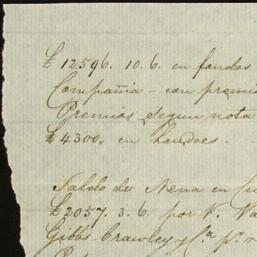 £ 12596. 10. 6. en fondos
Compañia - con premi
Premios segun nota
£ 4300, en
Saldo de Nena en
£ 2057. 3. 6. por V.
Gibbs Crawley y Cª pr